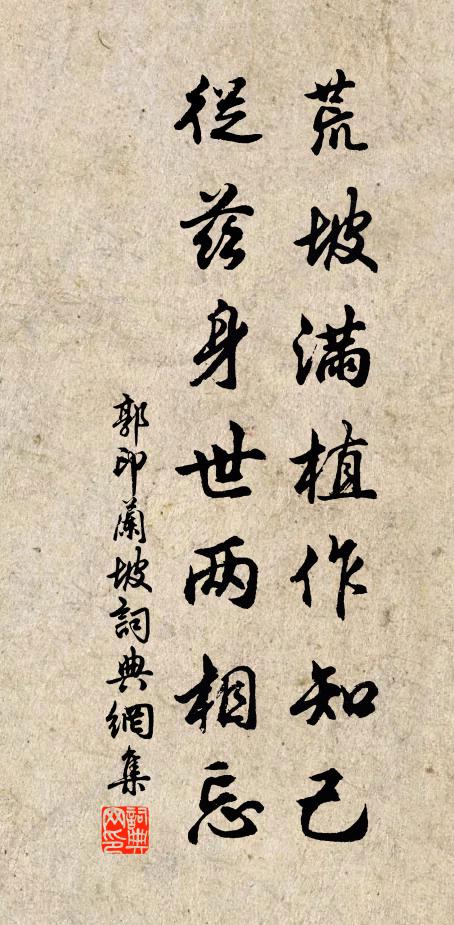 荒坡滿植作知己
從茲身世两相忘
郭印蘭坡詞典網集
詞典网印